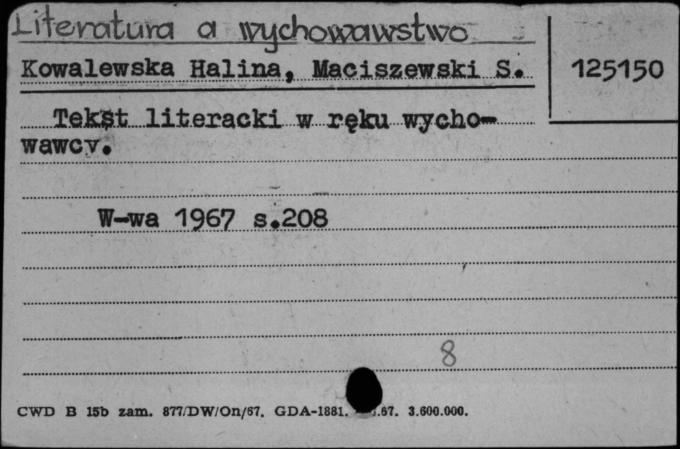 Literatura a wychowawstwo
Kowalewska Halina, Maciszewski S.
125150
Tekst literacki w ręku wycho-
wawcy.
W-wa 1967 s.208
8
CWD B 15b zam. 877/DW/On/67. GDA-1881. .67. 3.600.000.